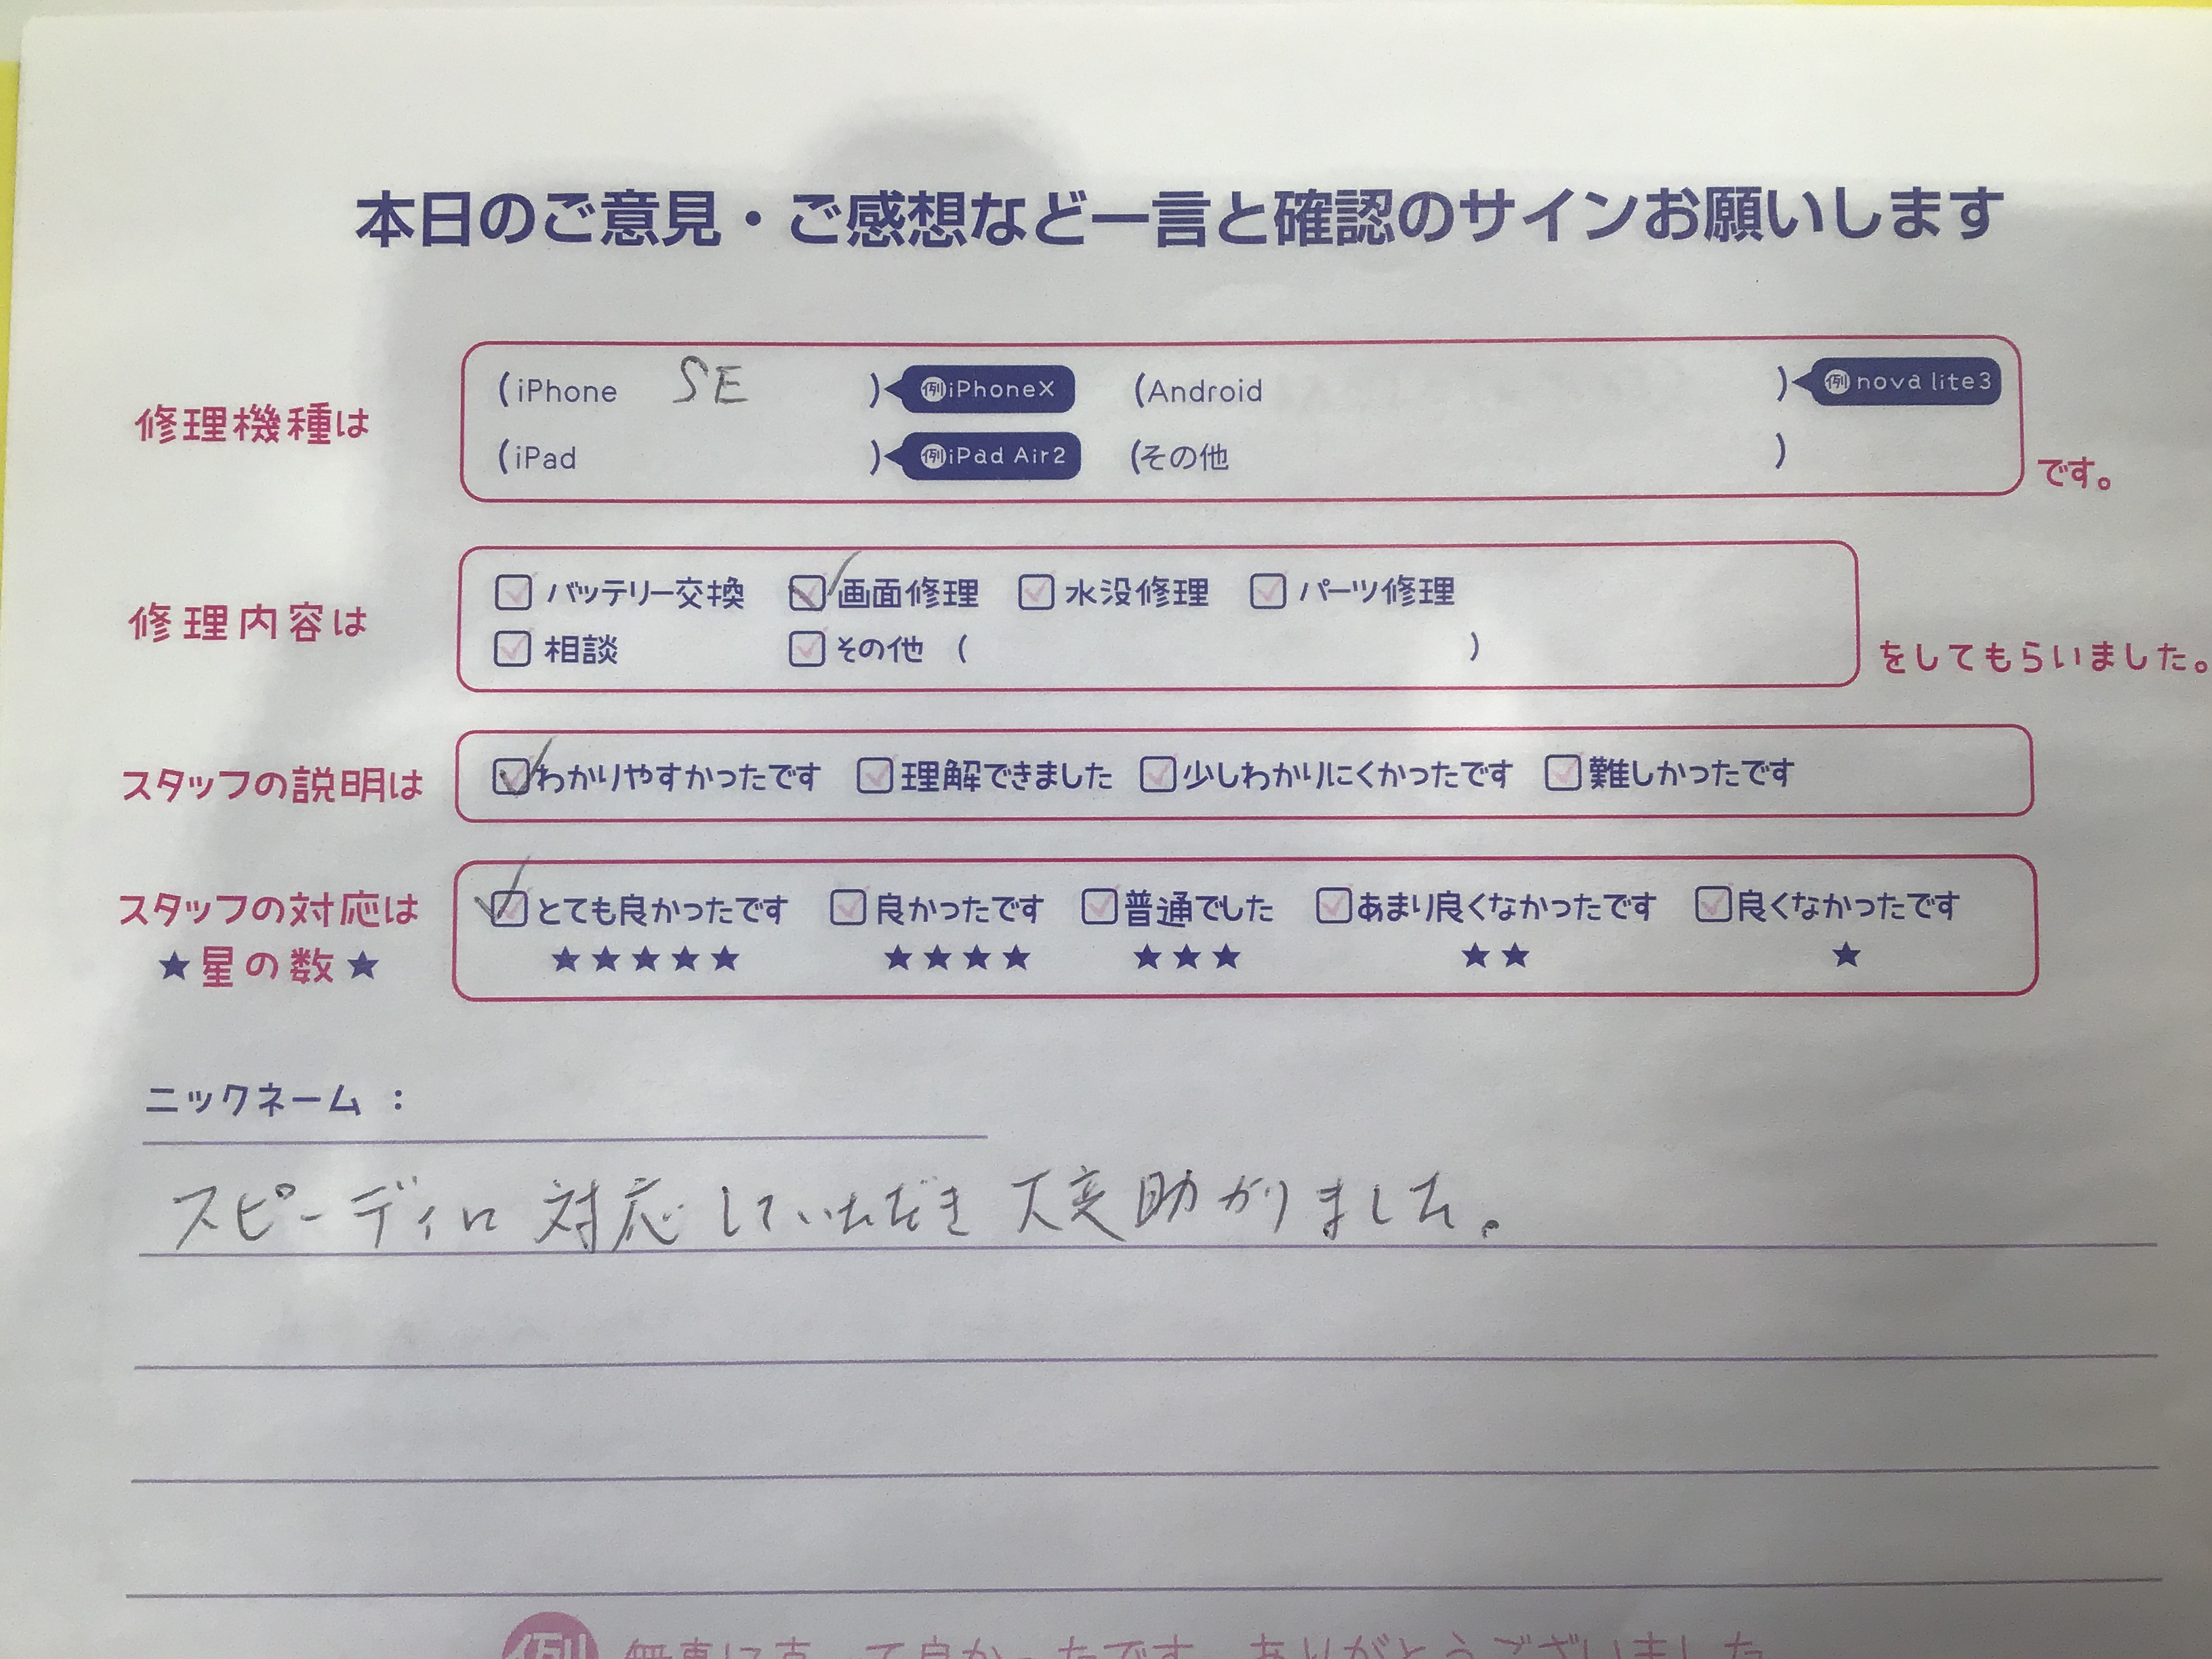 本日のご意見・ご感想など一言と確認のサインお願いします
修理機種は (iPhone SE ) 例iPhoneX (Android ) 例nova lite3
(iPad ) 例iPad Air2 (その他 ) です。
修理内容は バッテリー交換 画面修理 水没修理 パーツ修理
相談 その他 ( ) をしてもらいました。
スタッフの説明は わかりやすかったです 理解できました 少しわかりにくかったです 難しかったです
スタッフの対応は とても良かったです 良かったです 普通でした あまり良くなかったです 良くなかったです
★星の数★ ★★★★★ ★★★★ ★★★ ★★ ★
ニックネーム：
スピーディに対応していただき大変助かりました。
例 無事に直って良かったです ありがとうございました